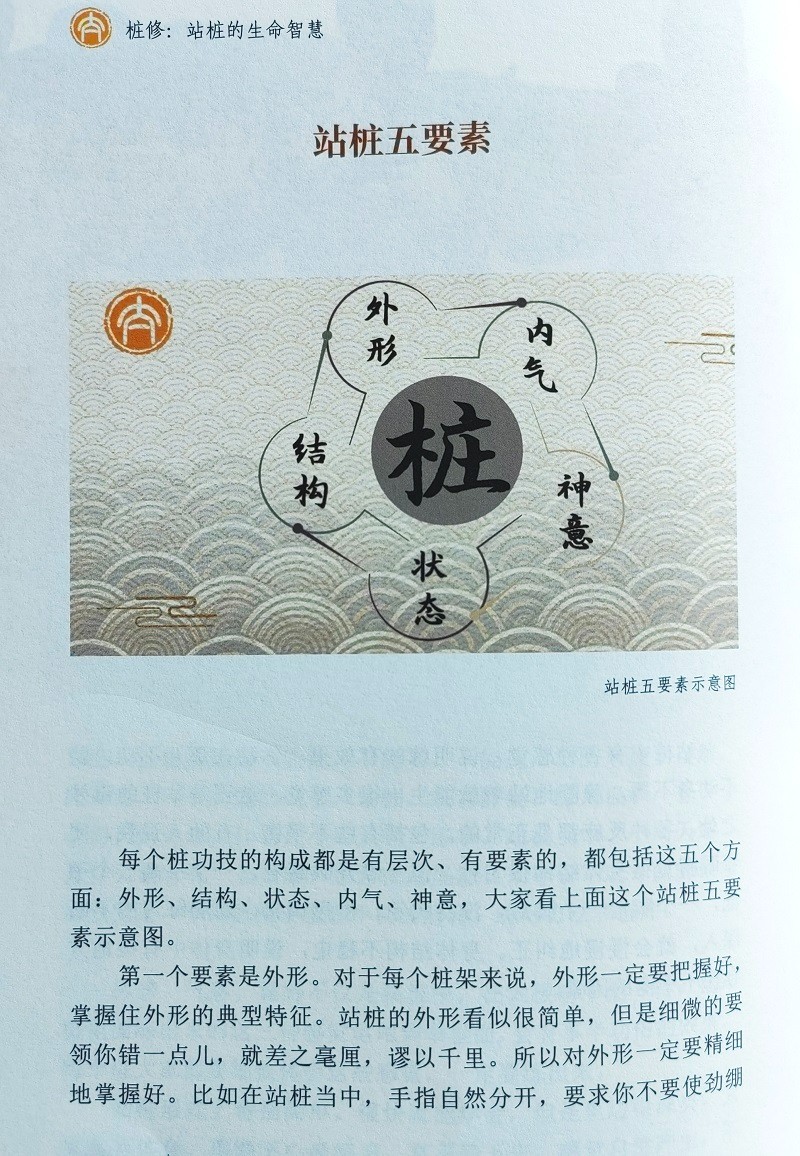 桩修：站桩的生命智慧
站桩五要素
外形
内气
结构
桩
神意
状态
站桩五要素示意图
每个桩功技的构成都是有层次、有要素的，都包括这五个方
面：外形、结构、状态、内气、神意，大家看上面这个站桩五要
素示意图。
第一个要素是外形。对于每个桩架来说，外形一定要把握好，
掌握住外形的典型特征。站桩的外形看似很简单，但是细微的要
领你错一点儿，就差之毫厘，谬以千里。所以对外形一定要精细
地掌握好。比如在站桩当中，手指自然分开，要求你不要使劲绷